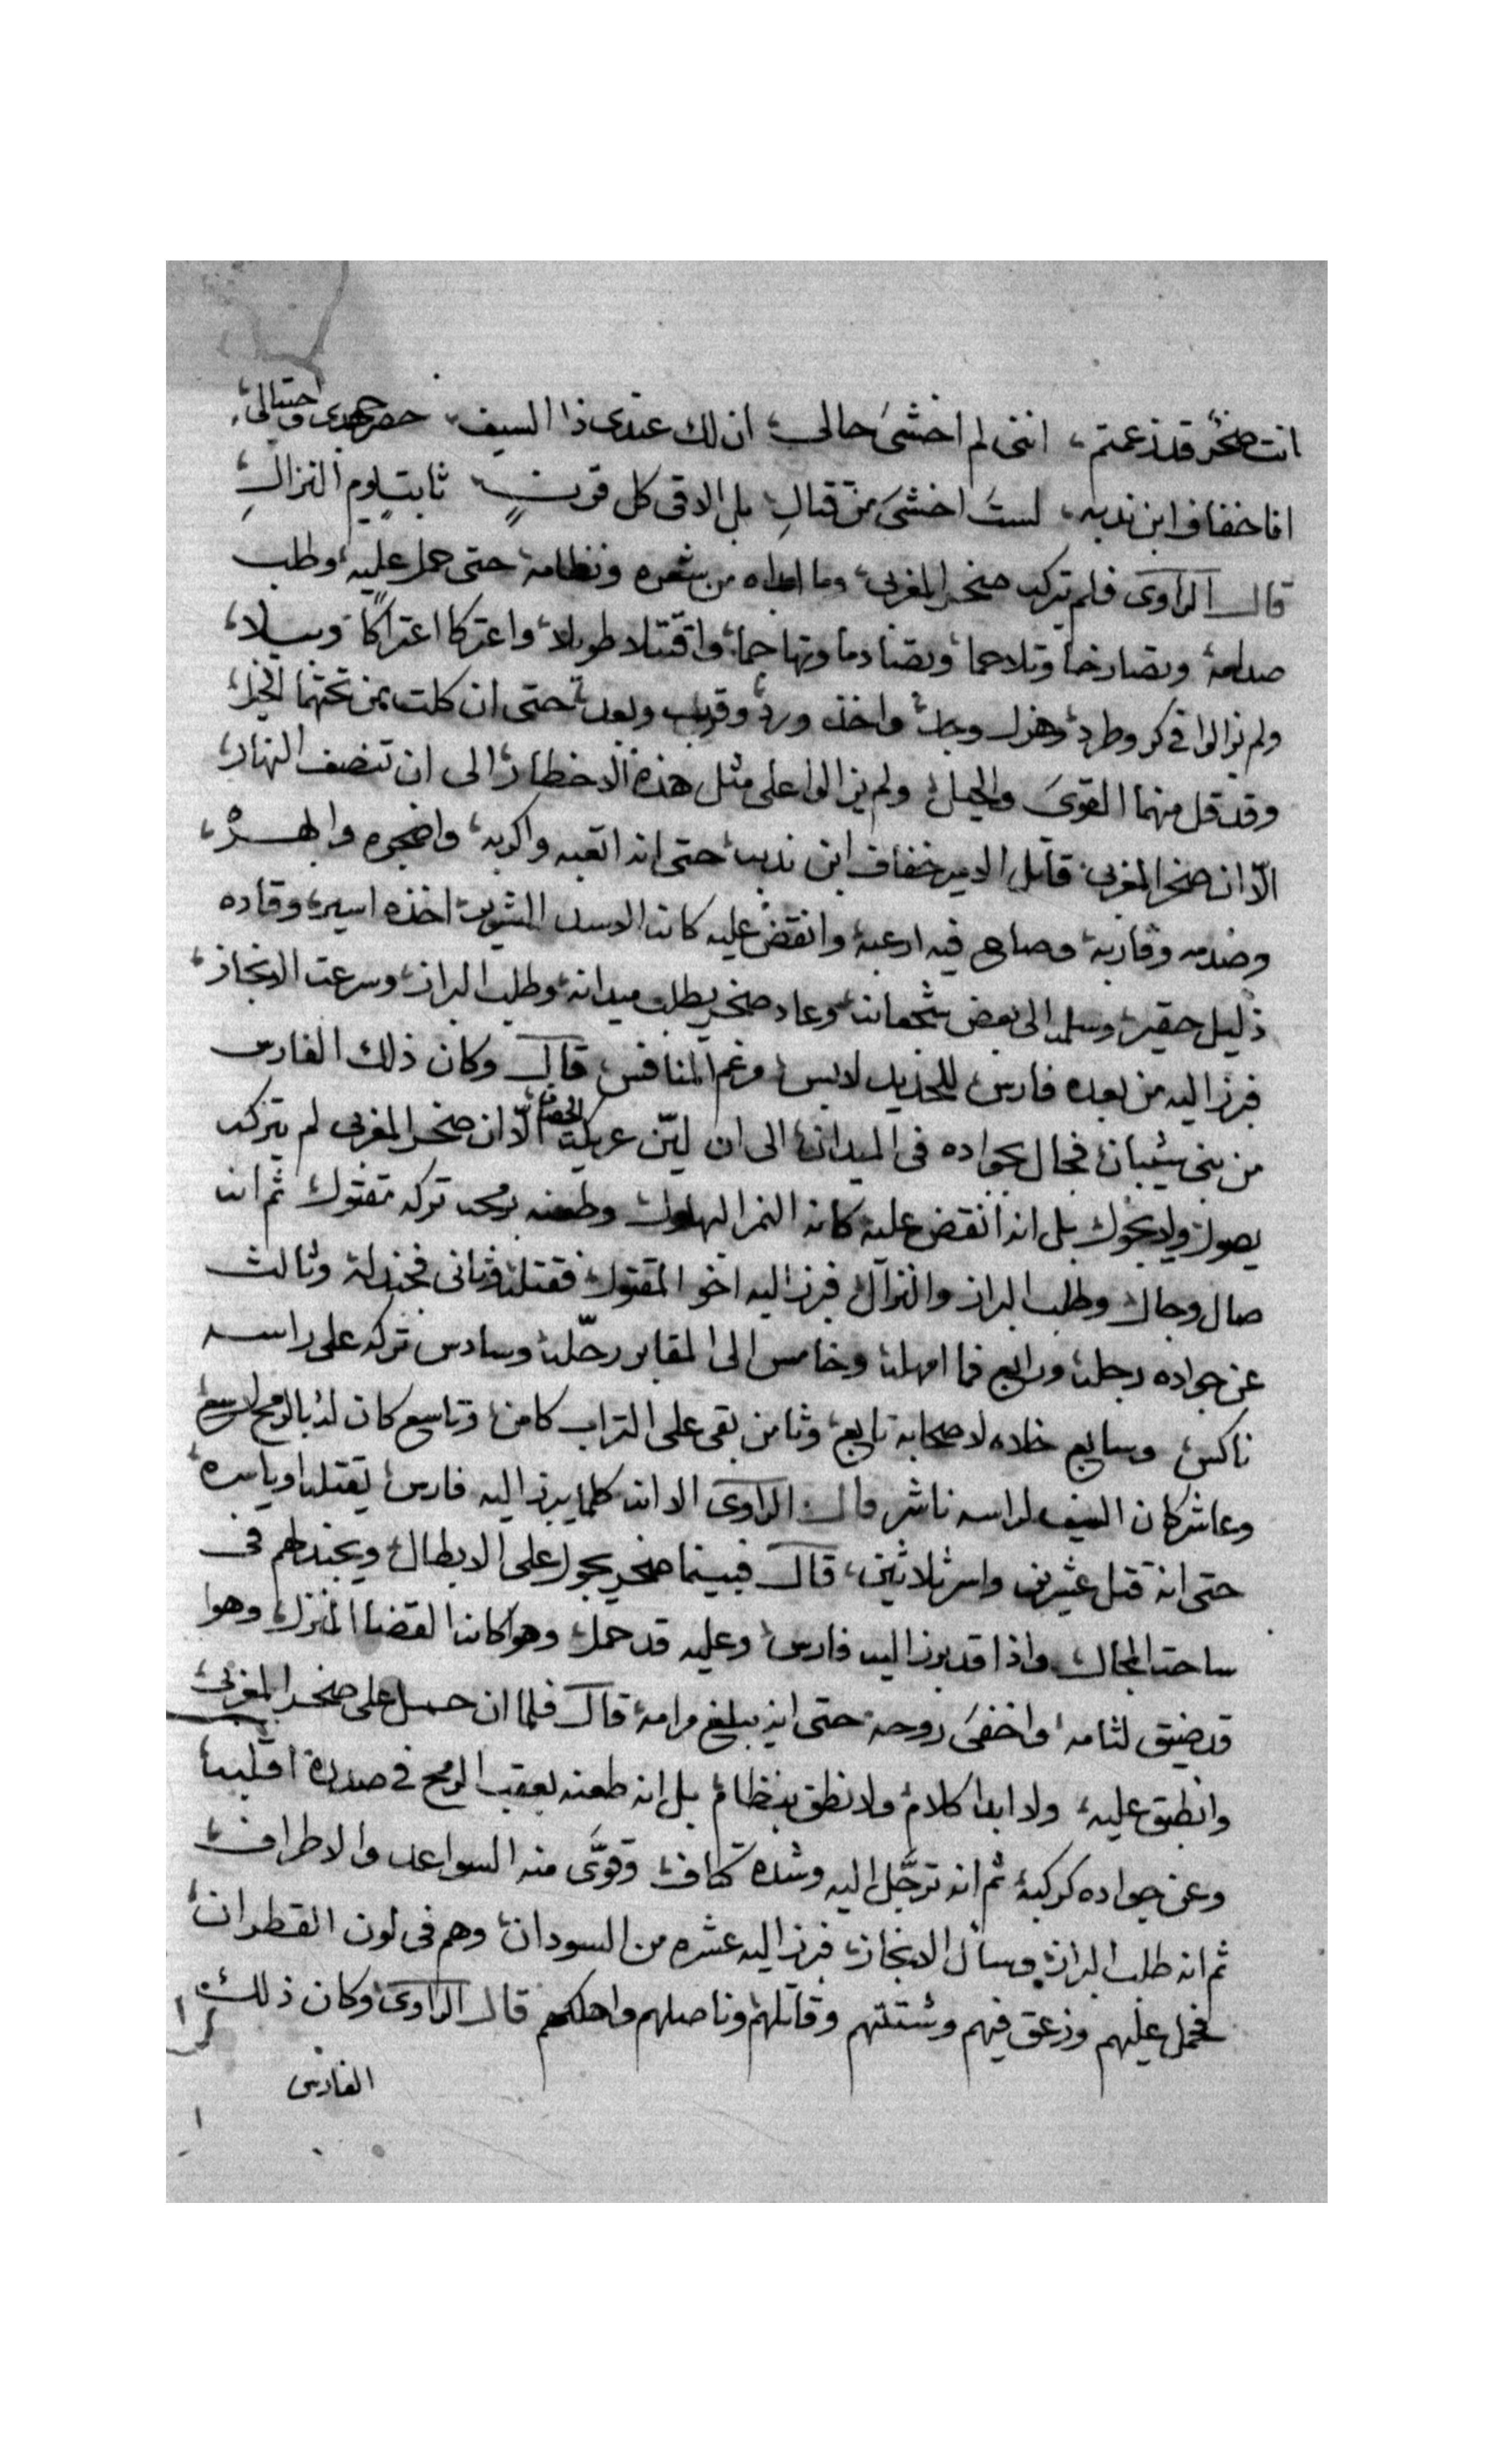 انت صخر قد زعمتم، اننى لم اخشى حالى، ان لك عندى ذا السيف، جهدى واحتيالى،
انا خفاف ابن ندبه، لست اخشى من قتالِ بل الاقى كل قرنٍ ثابتٍ يوم النزالِ
قال الراوى فلم يتركه صخر المغربى، وما ابداه من شعره ونظامه، حتى حمل عليه، وطلب
صدامه، وتصارخا وتلاحما، وتصادما وتهاجما، واقتتلا طويلا، واعتركا اعتراكًا وبيلا،
ولم يزالوا فى كر وطرد، وهزل وجد، واخذ ورد، وقرب وبعد، حتى ان كلت من تحتهما الخيل،
وقد قل منهما القوى والحيل، ولم يزالوا على مثل هذه الاخطار، الى ان تنصف النهار،
الّا ان صخر المغربى، قاتل الامير خفاف ابن ندبه، حتى انه اتعبه واكربه، واضجره وابهره،
وصدمه وقاربه، وصاح فيه ارعبه، وانقض عليه كانه الاسد المشوم، اخذه اسير، وقاده
ذليل حقير، وسلمه الى بعض شجعانه، وعاد صخر يطلب ميدانه، وطلب البراز، وسرعت الانجاز،
فبرز اليه من بعده فارس، للحديد لابس، ورغم المنافس، قال وكان ذلك الفارس
من بنى شيبان، فجال بجواده فى الميدان، الى ان ليّن عريكة الحصان، الّا ان صخر المغربى لم يتركه
يصول ولا يجول، بل انه انقض عليه كانه النمر البهلول، وطعنه برمحه تركه مقتول، ثم انه
صال وجال، وطلب البراز والنزال، فبرز اليه اخو المقتول، فقتله، وثانى فجندله، وثالث
عن جواده رجله، ورابع فما امهله، وخامس الى المقابر رحّله، وسادس تركه على راسه
ناكس، وسابع خلاه لاصحابه تابع، وثامن بقى على التراب كامن، وتاسع كان له بالرمح لاسع،
وعاشر كان السيف لراسه ناشر قال الراوى الا انه كلما يبرز اليه فارس، يقتله او ياسره،
حتى انه قتل عشرين واسر ثلاثين، قال فبينما صخر يجول على الابطال، ويجندلهم فى
ساحت المجال، واذا قد برز اليه فارس، وعليه قد حمل، وهو كانه القضا المنزل، وهوا
قد ضيق لثامه، واخفى روحه، حتى انه يبلغ مرامه، قال فلما ان حمل على صخر المغربى،
وانطبق عليه، ولا ابدا كلام، ولا نطق بنظام، بل انه طعنه بعقب الرمح فى صدره اقلبه،
وعن جواده كركبه، ثم انه ترجّل اليه وشده كتاف، وقوّى منه السواعد والاطراف،
ثم انه طلب البراز، وسأل الانجاز، فبرز اليه عشره من السودان، وهم فى لون القطران،
فحمل عليهم وزعق فيهم وشتتهم وقاتلهم وناصلهم واهلكهم قال الراوى وكان ذلك
الفارس